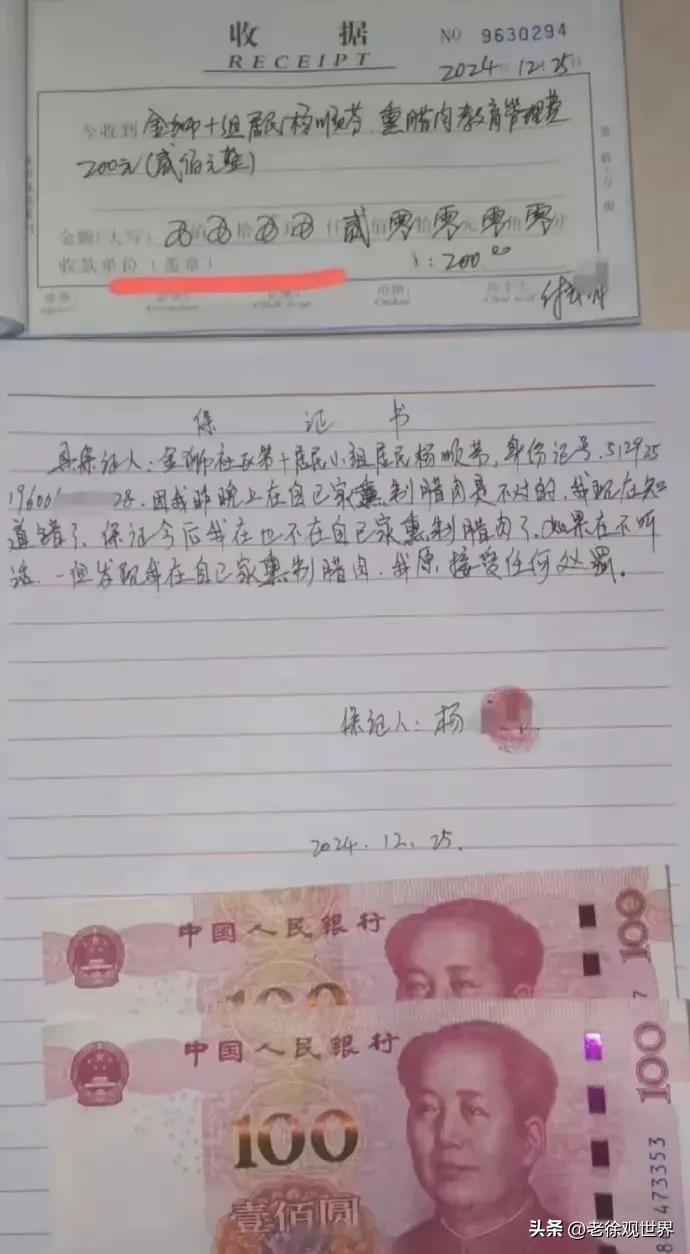 收据
NO 9630294
RECEIPT
2024 12.25
今收到 金狮十组居民杨顺芬 熏腊肉教育管理费
200元(贰佰元整)
金额(大写) 贰 佰 零 拾 零 元 零 角 零 分
收款单位(盖章) ¥: 200 00
保 证 书
具保证人: 金狮社区第十居民小组居民杨顺芬, 身份证号. 512925
19600 28. 因我昨晚上在自己家熏制腊肉是不对的, 我现在知
道错了, 保证今后我在也不在自己家熏制腊肉了, 如果在不听
话. 一但发现我在自己家熏制腊肉. 我愿接受任何处罚。
保证人: 杨
2024. 12. 25.
中国人民银行
100
100
中国人民银行
100
100
壹佰圆
473353
头条 @老徐观世界